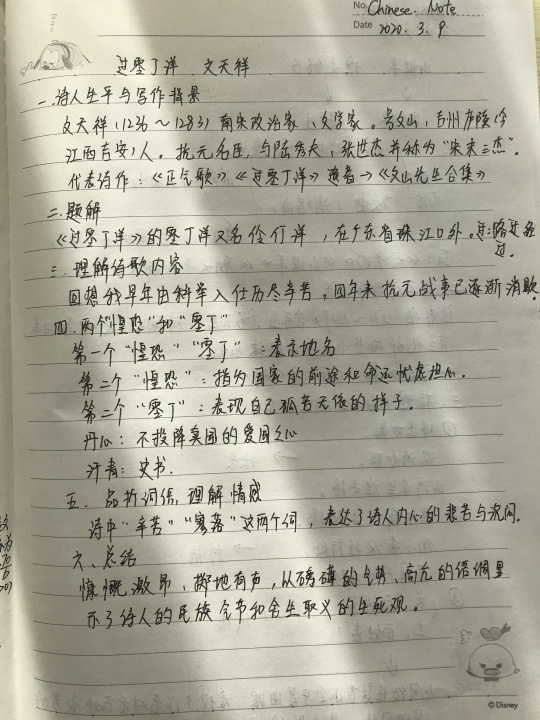 No. Chinese. Note
Date 2020. 3. 9
过零丁洋 文天祥
一.诗人生平与写作背景
文天祥(1236～1283)南宋政治家、文学家。号文山,吉州庐陵(今
江西吉安)人。抗元名臣,与陆秀夫、张世杰并称为"宋末三杰".
代表诗作:《正气歌》《过零丁洋》遗著→《文山先生全集》
二.题解
《过零丁洋》的零丁洋又名伶仃洋,在广东省珠江口外。过:路过经
过.
三.理解诗歌内容
回想我早年由科举入仕历尽辛苦,四年来抗元战事已逐渐消歇.
四.两个"惶恐"和"零丁"
第一个"惶恐""零丁":表示地名
第二个"惶恐":指为国家的前途和命运忧虑担心.
第二个"零丁":表现自己孤苦无依的样子.
丹心:不投降卖国的爱国之心
汗青:史书.
五.品析词语,理解情感
诗中"辛苦""寥落"这两个词,表达了诗人内心的悲苦与沉闷.
六.总结
慷慨激昂、掷地有声,从磅礴的气势、高亢的语调显
示了诗人的民族气节和舍生取义的生死观。
© Disney